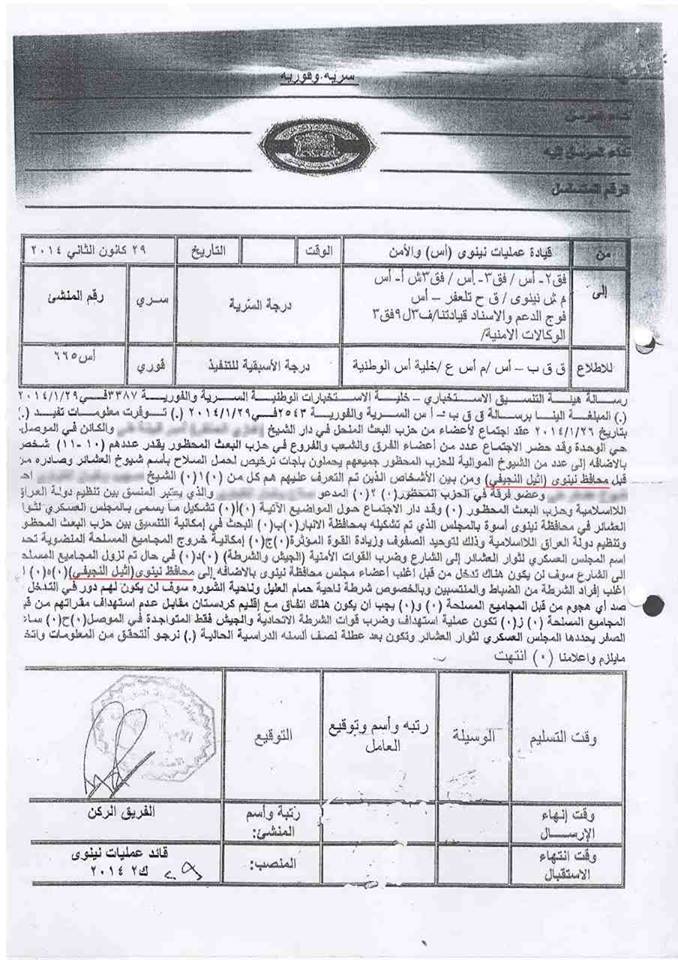 سريه وفوريه
من
قيادة عمليات نينوى (أس) والأمن
الوقت
التاريخ
٢٩ كانون الثاني ٢٠١٤
إلى
فق٢- أس / فق٣- أس / فق٣ش أ- أس
م ش نينوى / ق ح تلعفر – أس
فوج الدعم والاسناد قيادتنا/ف٣ل٩فق٣
الوكالات الامنية/
درجة السّرية
سري
رقم المنشئ
للاطلاع
ق ق ب – أس /م أس ع /خلية أس الوطنية
درجة الأسبقية للتنفيذ
فوري
أس٦٦٥
رسالة هيئة التنسيق الاستخباري – خلية الاستخبارات الوطنية السرية والفورية ٣٣٨٧في٢٠١٤/١/٢٩
(.) المبلغة الينا برسالة ق ق ب – أ س السرية والفورية ٢٥٤٣في٢٠١٤/١/٢٩ (.) توفرت معلومات تفيد (.)
بتاريخ ٢٠١٤/١/٢٦ عقد اجتماع لأعضاء من حزب البعث المنحل في دار الشيخ والكائن في الموصل
حي الوحدة وقد حضر الاجتماع عدد من أعضاء الفرق والشعب والفروع في حزب البعث المحظور يقدر عددهم (١٠-١١) شخص
بالاضافه إلى عدد من الشيوخ الموالية للحزب المحظور جميعهم يحملون باجات ترخيص لحمل السلاح بأسم شيوخ العشائر وصادره من
قبل محافظ نينوى (اثيل النجيفي) ومن بين الأشخاص الذين تم التعرف عليهم هم كل من (٠)١(٠) الشيخ
وعضو فرقة في الحزب المحظور(٠)٢(٠) المدعو والذي يعتبر المنسق بين تنظيم دولة العراق
اللااسلامية وحزب البعث المحظور (٠) وقد دار الاجتماع حول المواضيع الآتية (٠)أ(٠) تشكيل ما يسمى بالمجلس العسكري لثوار
العشائر في محافظة نينوى أسوة بالمجلس الذي تم تشكيله بمحافظة الانبار(٠)ب(٠) البحث في إمكانية التنسيق بين حزب البعث المحظور
وتنظيم دولة العراق اللااسلامية وذلك لتوحيد الصفوف وزيادة القوة المؤثرة(٠)ج(٠) إمكانية خروج المجاميع المسلحة المنضوية تحت
اسم المجلس العسكري لثوار العشائر إلى الشارع وضرب القوات الأمنية (الجيش والشرطة) (٠)د(٠) في حال تم نزول المجاميع المسلحة
الى الشارع سوف لن يكون هناك تدخل من قبل اغلب أعضاء مجلس محافظة نينوى بالاضافه إلى محافظ نينوى(اثيل النجيفي)(٠)ه(٠)
اغلب إفراد الشرطة من الضباط والمنتسبين وبالخصوص شرطة ناحية حمام العليل وناحية الشوره سوف لن يكون لهم دور في التدخل
صد أي هجوم من قبل المجاميع المسلحة (٠) و(٠) يجب ان يكون هناك اتفاق مع إقليم كردستان مقابل عدم استهداف مقراتهم من قبل
المجاميع المسلحة (٠) ز(٠) تكون عملية استهداف وضرب قوات الشرطة الاتحادية والجيش فقط المتواجدة في الموصل(٠)ح(٠) ساعة
الصفر يحددها المجلس العسكري لثوار العشائر وتكون بعد عطلة نصف السنه الدراسية الحالية (.) نرجو التحقق من المعلومات واتخاذ
مايلزم واعلامنا (٠) أنتهت
وقت التسليم
الوسيلة
رتبه وأسم وتوقيع العامل
التوقيع
وقت إنهاء الإرسال
رتبة وأسم المنشئ:
الفريق الركن
وقت انتهاء الاستقبال
المنصب:
قائد عمليات نينوى
٢٩ ك٢ ٢٠١٤